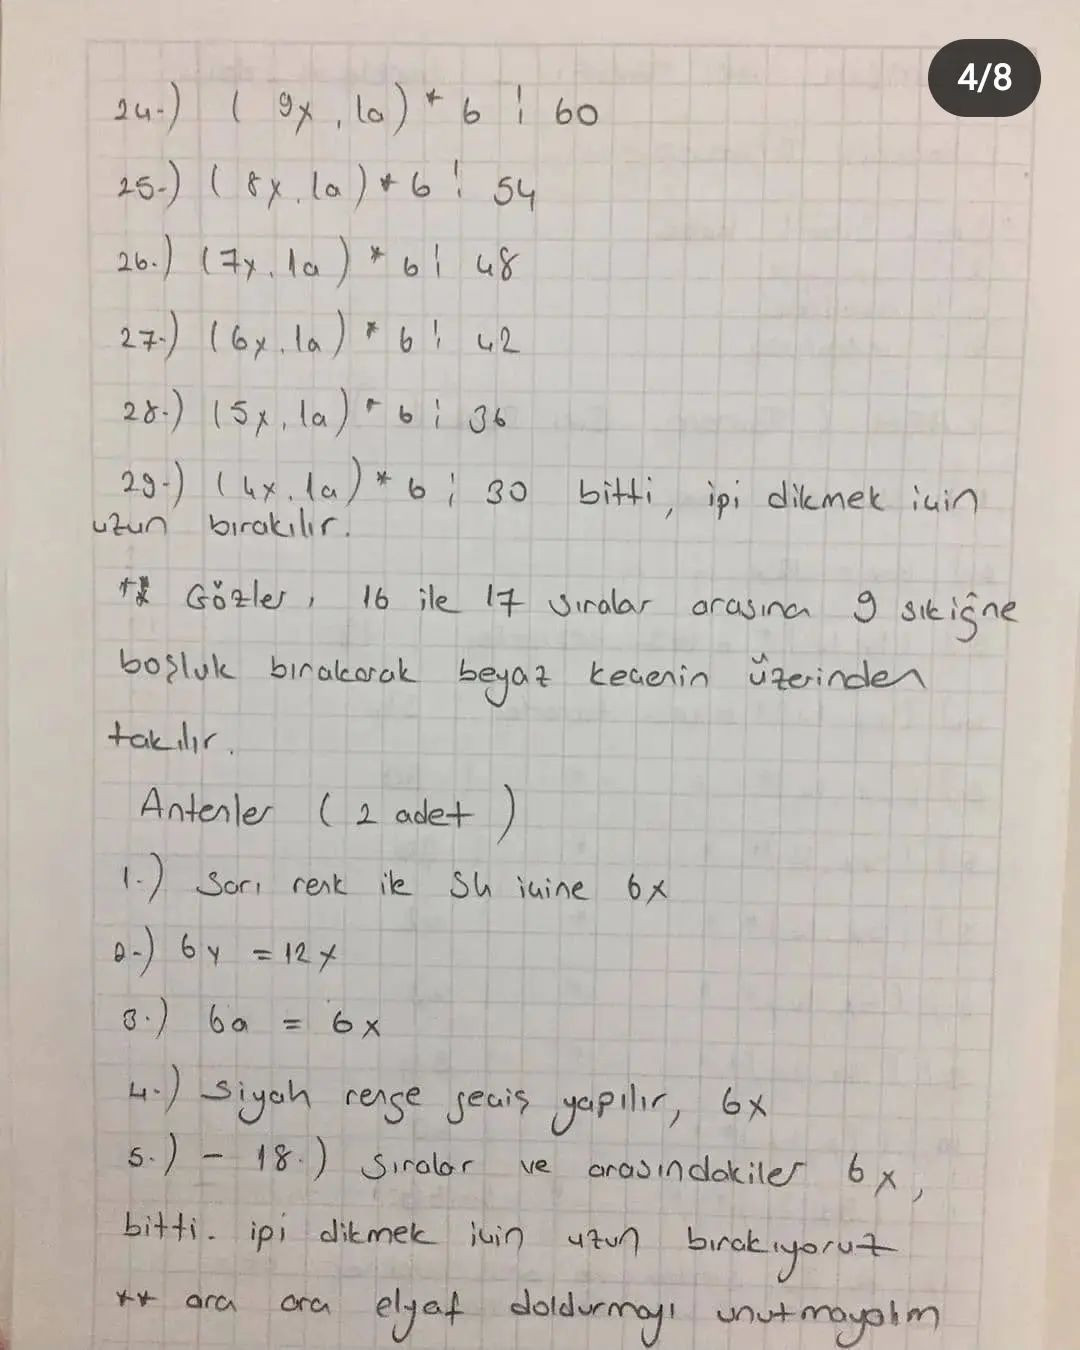 4/8
24-) ( 9x, 1a) * 6 : 60
25-) ( 8x, 1a) * 6 : 54
26.) (7x, 1a) * 6 : 48
27-) (6x, 1a) * 6 : 42
28-) (5x, 1a) * 6 : 36
29-) (4x, 1a) * 6 : 30 bitti, ipi dikmek için
uzun bırakılır.
** Gözler, 16 ile 17 sıralar arasına 9 sık iğne
boşluk bırakarak beyaz keçenin üzerinden
takılır.
Antenler ( 2 adet )
1.-) Sarı renk ile Sh içine 6x
2-) 6v = 12x
3.) 6a = 6x
4.) Siyah renge geçiş yapılır, 6x
5.) - 18.) Sıralar ve arasındakiler 6x,
bitti. ipi dikmek için uzun bırakıyoruz
** ara ara elyaf doldurmayı unutmayalım